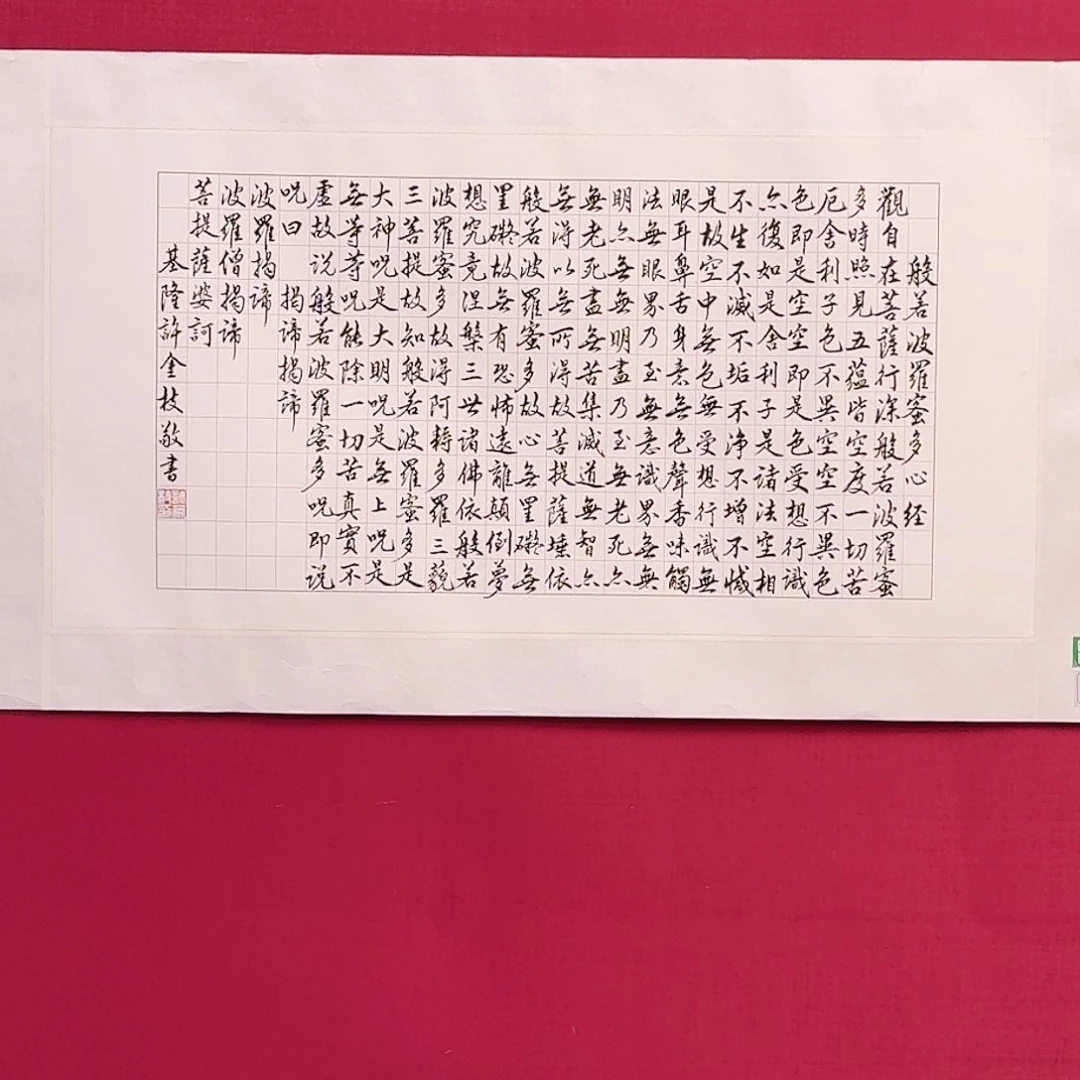 般若波羅蜜多心経
觀自在菩薩行深般若波羅蜜
多時照見五蘊皆空度一切苦
厄舍利子色不異空空不異色
色即是空空即是色受想行識
亦復如是舍利子是諸法空相
不生不滅不垢不淨不增不減
是故空中無色無受想行識無
眼耳鼻舌身意無色聲香味觸
法無眼界乃至無意識界無無
明亦無無明盡乃至無老死亦
無老死盡無苦集滅道無智亦
無得以無所得故菩提薩埵依
般若波羅蜜多故心無罣礙無
罣礙故無有恐怖遠離顛倒夢
想究竟涅槃三世諸佛依般若
波羅蜜多故得阿耨多羅三藐
三菩提故知般若波羅蜜多是
大神呪是大明呪是無上呪是
無等等呪能除一切苦真實不
虛故說般若波羅蜜多呪即說
呪曰 揭諦揭諦
波羅揭諦
波羅僧揭諦
菩提薩婆訶
基隆許金枝敬書